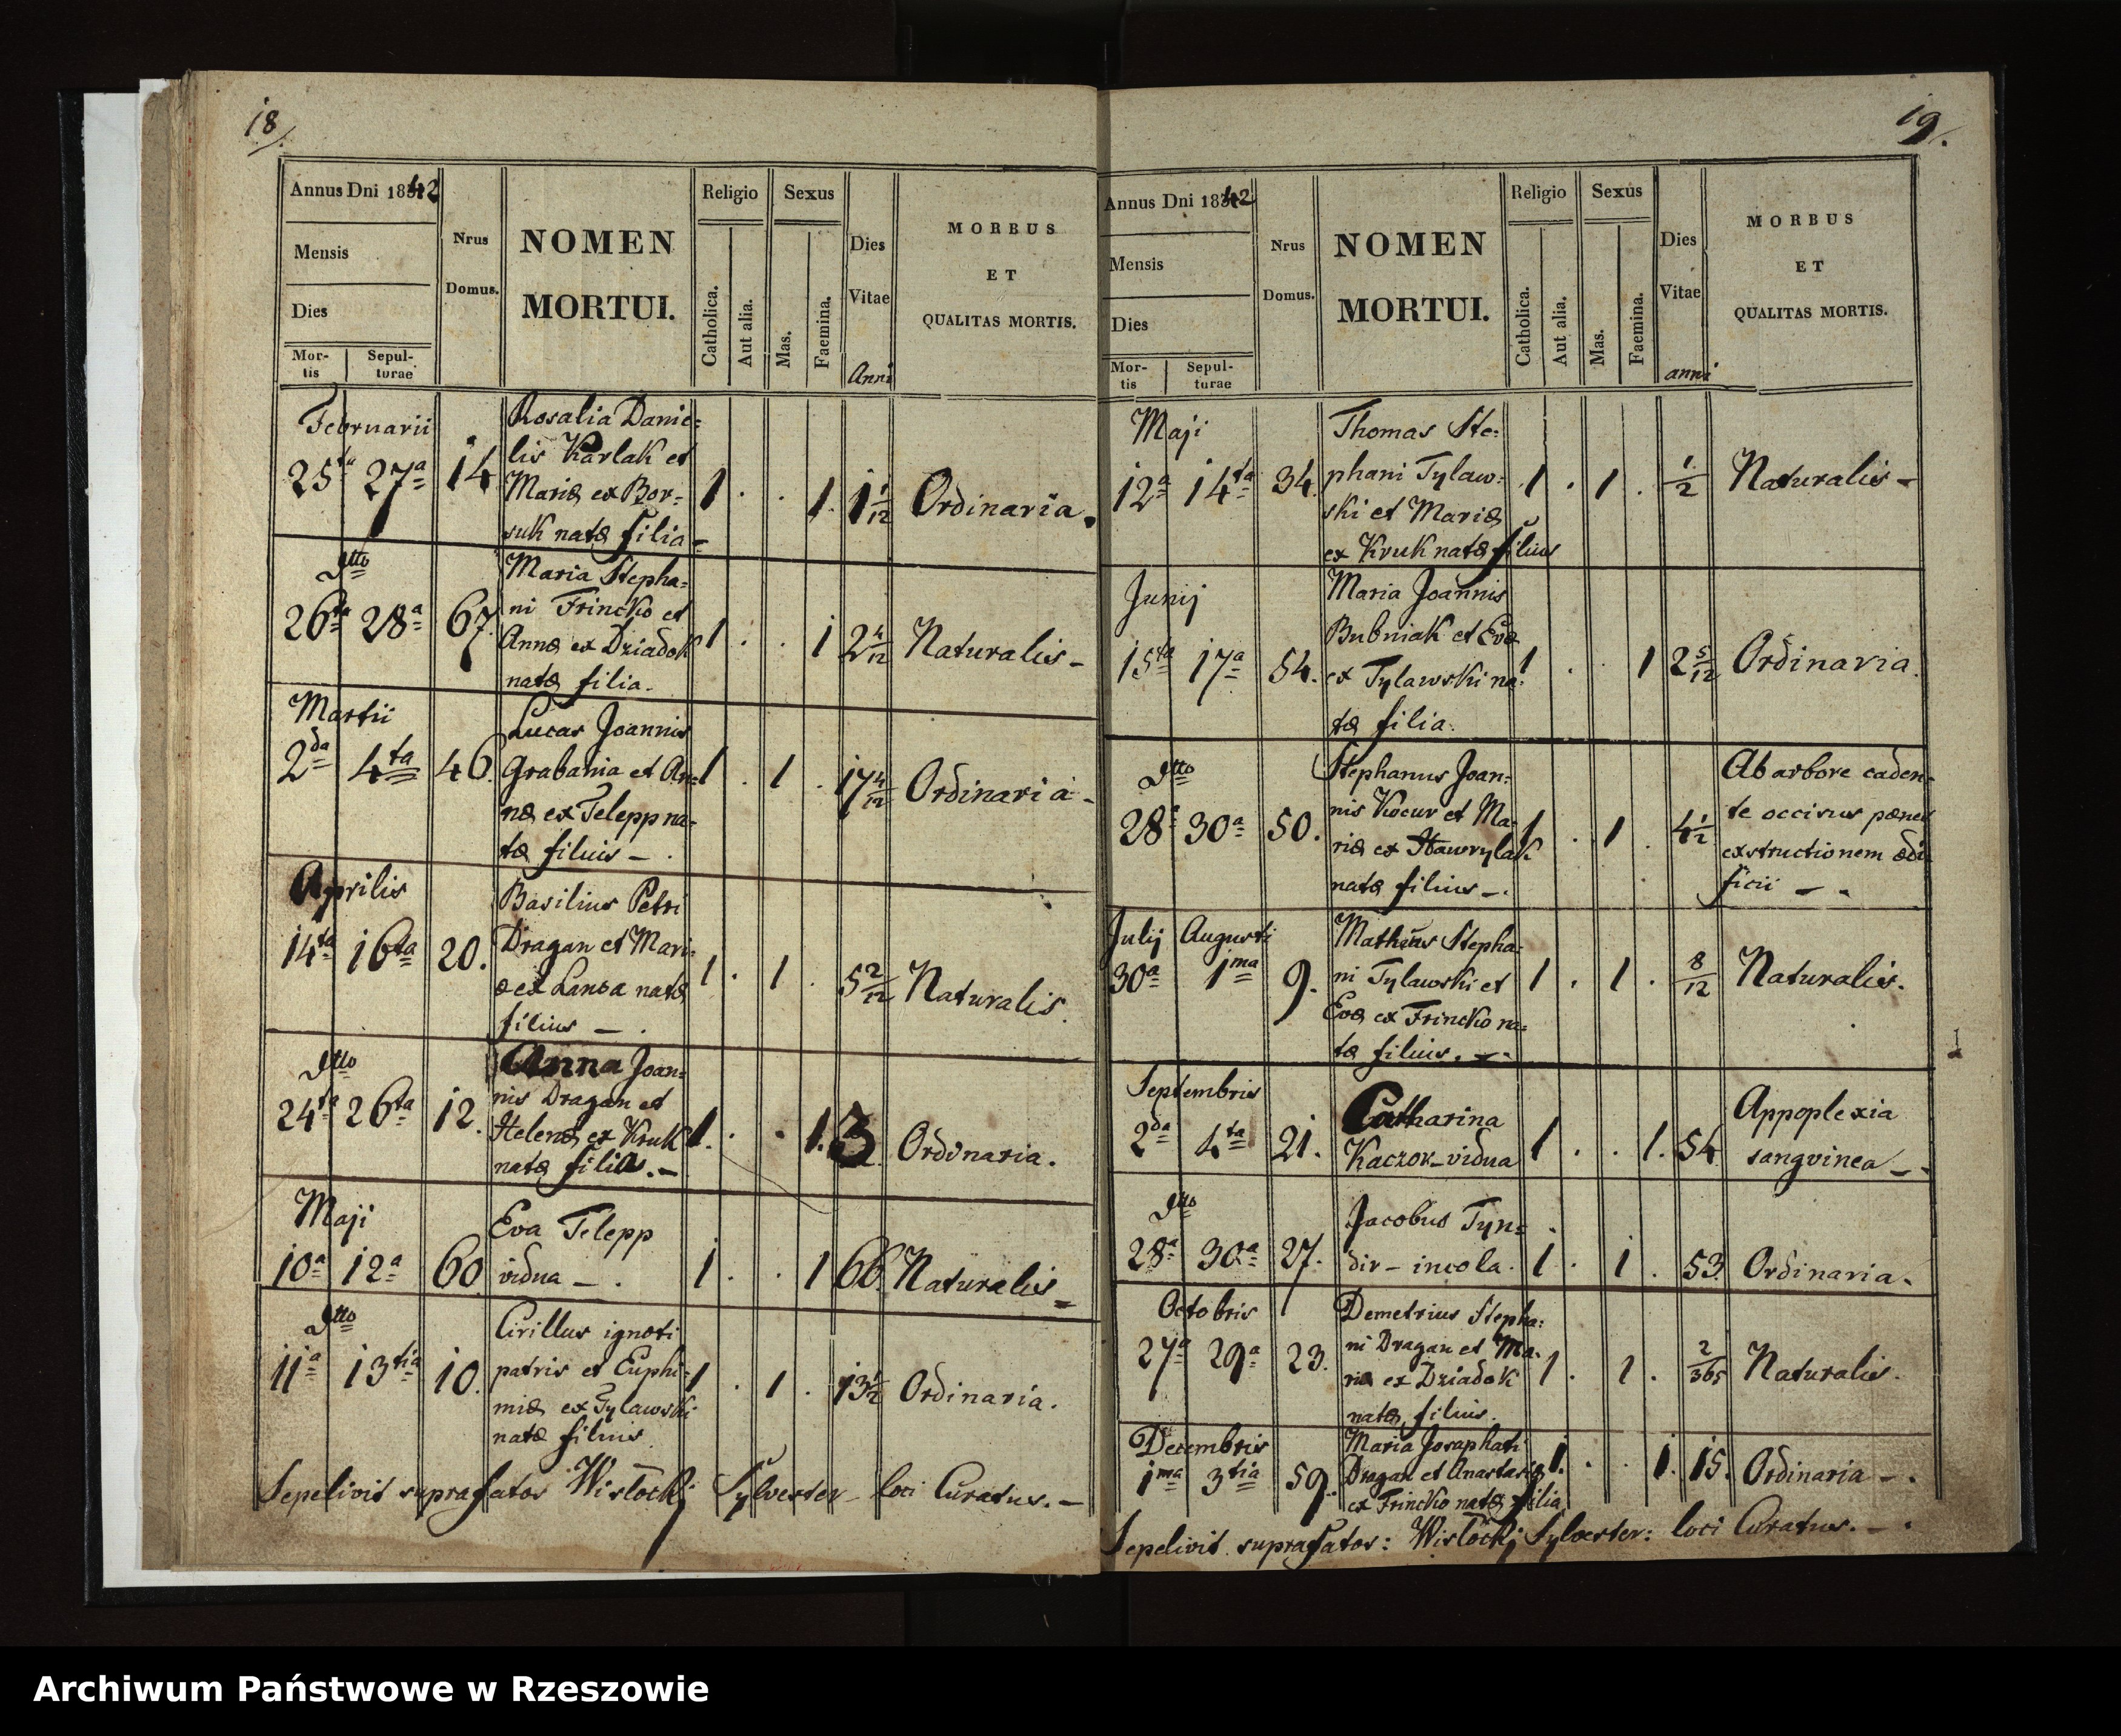 18/.
Annus Dni 1842
Mensis
Dies
Mor-
tis
Sepul-
turae
Nrus
Domus.
NOMEN
MORTUI.
Religio
Catholica.
Aut alia.
Sexus
Mas.
Faemina.
Dies
Vitae
Anni
MORBUS
ET
QUALITAS MORTIS.
Februarii
25ta 27a 14
Rosalia Danie=
lis Karlak et
Mariæ ex Bor=
suk natæ filia =
1 . . 1. 1 1/12 Ordinaria.
Dtto
26ta 28a 67.
Maria Stepha=
ni Frincko et
Annæ ex Dziadok
natæ filia.
1 . . 1 2 4/12 Naturalis -
Martii
2da 4ta 46.
Lucas Joannis
Grabania et An=
næ ex Telepp na-
tæ filius - .
1 . 1 . 17 4/12 Ordinaria -
Aprilis
14ta 16ta 20.
Basilius Petri
Dragan et Mari-
æ ex Landa natæ
filius - .
1 . 1 . 5 2/12 Naturalis.
Dtto
24ta 26ta 12.
Anna Joan=
nis Dragan et
Helenæ ex Kruk
natæ filia. -
1. . . 1. 3 Ordonaria.
Maji
10a 12a 60.
Eva Telepp
vidua - .
1 . . 1 66. Naturalis =
Dtto
11a 13tia 10.
Cirillus ignoti
patris et Euphi=
miæ ex Tylawski
natæ filius
1 . 1 . 13 1/2 Ordinaria.
Sepelivit suprafatos Wisłocki Sylvester - loci Curatus. -
19.
Annus Dni 1842
Mensis
Dies
Mor-
tis
Sepul-
turae
Nrus
Domus.
NOMEN
MORTUI.
Religio
Catholica.
Aut alia.
Sexus
Mas.
Faemina.
Dies
Vitae
anni
MORBUS
ET
QUALITAS MORTIS.
Maji
12a 14ta 34.
Thomas Ste=
phani Tylaw=
ski et Mariæ
ex Kruk natæ filius
1 . 1 . 1/2 Naturalis -
Junij
15ta 17a 54.
Maria Joannis
Bubniak et Evæ
ex Tylawski na=
tæ filia.
1 . 1 2 5/12 Ordinaria.
Dtto
28a 30a 50.
Stephanus Joan=
nis Kocur et Ma=
riæ ex Hawrylak
natæ filius -.
1 . 1 . 4 1/2
Ab arbore caden=
te occisus pænes
exstructionem ædi=
ficii - .
Julij Augusti
30a 1ma 9.
Mathæus Stepha=
ni Tylawski et
Evæ ex Frincko na=
tæ filius. - .
1 . 1 . 8/12 Naturalis.
Septembris
2da 4ta 21.
Catharina
Kaczor - vidua
1 . . 1. 54
Appoplexia
sangvinea - .
Dtto
28a 30a 27.
Jacobus Tyn=
dir - incola.
1 . 1 . 53. Ordinaria.
Octobris
27a 29a 23.
Demetrius Stepha=
ni Dragan et Ma=
riæ ex Dziadok
natæ filius.
1. . 1. 2/365 Naturalis.
Decembris
1ma 3tia 59.
Maria Josaphati
Dragan et Anastasiæ
ex Frincko natæ filia
1. . . 1. 15. Ordinaria - .
Sepelivit suprafatos: Wisłocki Sylvester: loci Curatus. - .
Archiwum Państwowe w Rzeszowie